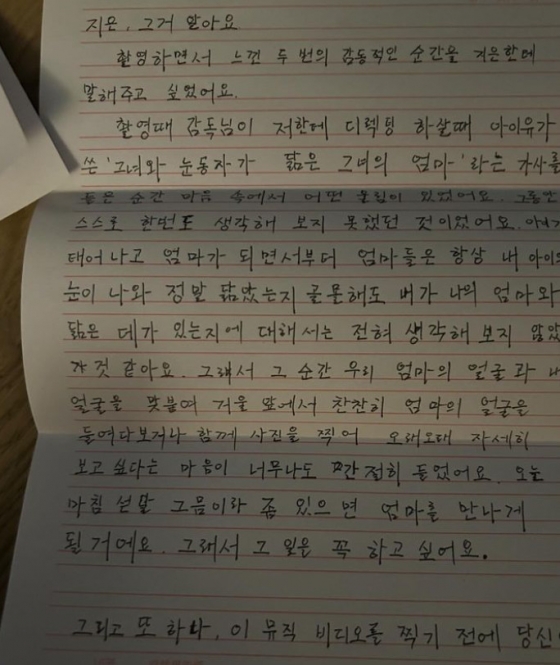 지은, 그거 알아요
촬영하면서 느낀 두 번의 감동적인 순간을 지은한테
말해주고 싶었어요.
촬영때 감독님이 저한테 디렉팅 하실때 아이유가
쓴 '그녀와 눈동자가 닮은 그녀의 엄마'라는 가사를
들은 순간 마음 속에서 어떤 울림이 있었어요. 그동안
스스로 한번도 생각해 보지 못했던 것이었어요. 아이가
태어나고 엄마가 되면서부터 엄마들은 항상 내 아이의
눈이 나와 정말 닮았는지 골몰해도 내가 나의 엄마와
닮은 데가 있는지에 대해서는 전혀 생각해 보지 않았
던 것 같아요. 그래서 그 순간 우리 엄마의 얼굴과 내
얼굴을 맞붙여 거울 앞에서 찬찬히 엄마의 얼굴을
들여다보거나 함께 사진을 찍어 오래오래 자세히
보고 싶다는 마음이 너무나도 간절히 들었어요. 오늘
마침 섣달 그믐이라 좀 있으면 엄마를 만나게
될 거예요. 그래서 그 일을 꼭 하고 싶어요.
그리고 또 하나, 이 뮤직 비디오를 찍기 전에 당신